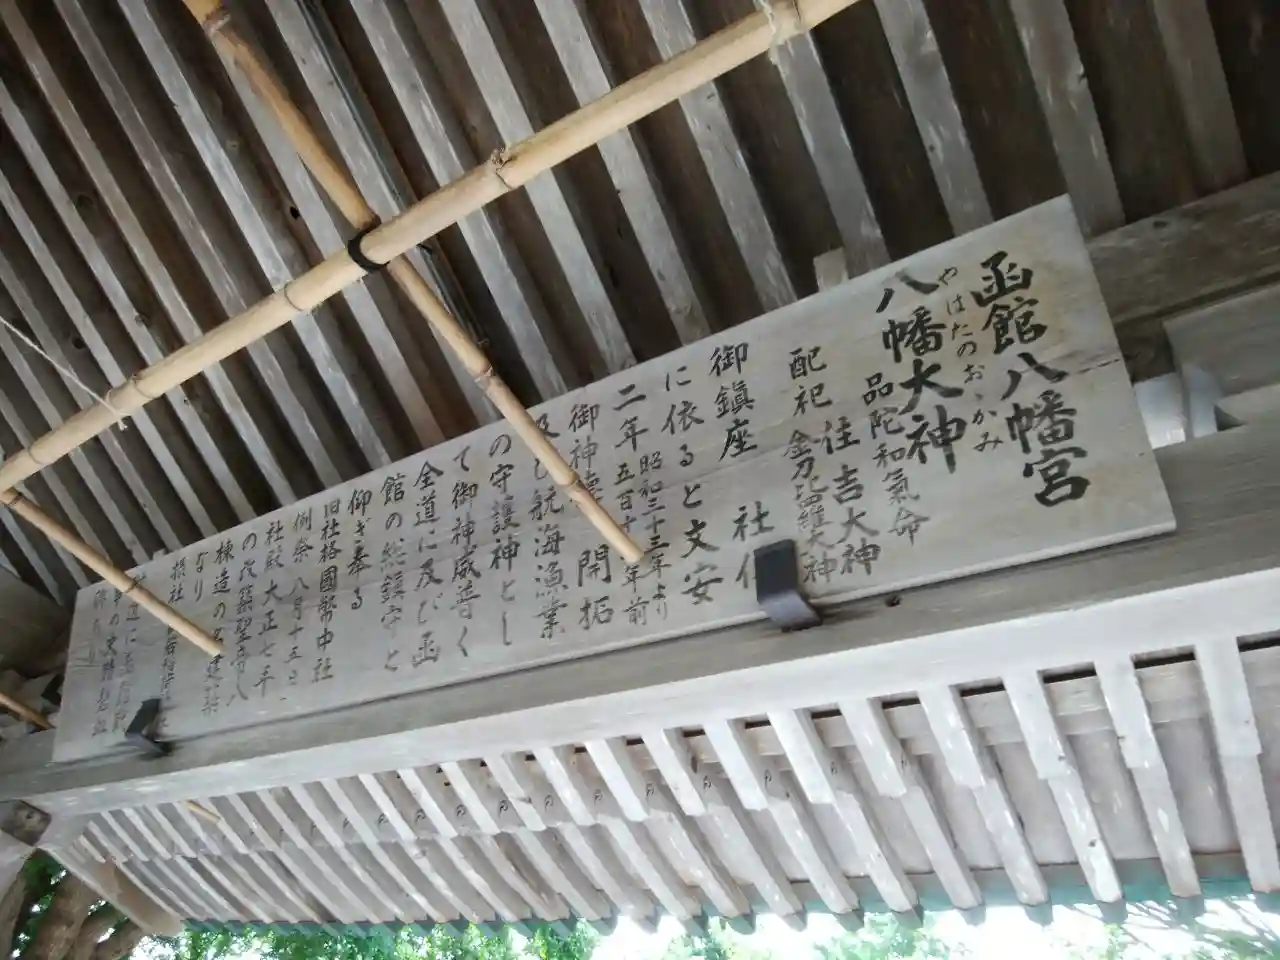 函館八幡宮
やはたのおゝかみ
八幡大神
品陀和氣命
住吉大神
配祀 金刀比羅大神
御鎮座 社伝
に依ると文安
二年 昭和三十三年より
五百十年前
御神徳 開拓
及び航海漁業
の守護神とし
て御神威普く
全道に及び函
館の総鎮守と
仰ぎ奉る
旧社格國幣中社
例祭 八月十五日
社殿 大正七年
の改築聖帝八
棟造の名建築
なり